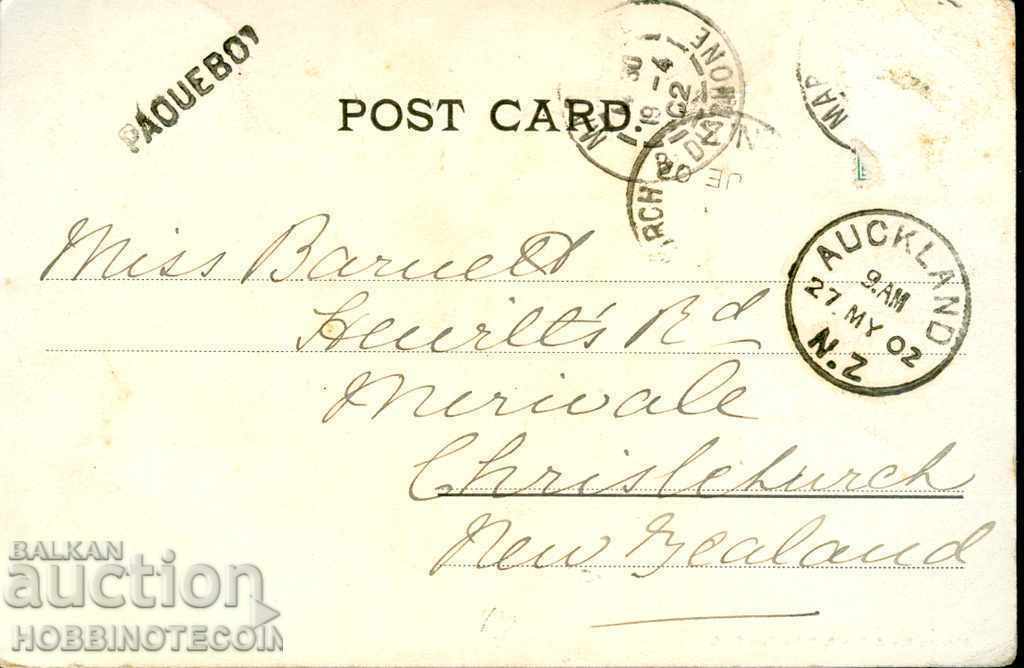 PAQUEBOT
POST CARD.
19-4
02
MAR
AUCKLAND
9.AM
27.MY 02
N.Z
Miss Barnett
Hewitt's Rd
Merivale
Christchurch
New Zealand
BALKAN
auction
HOBBINOTECOIN